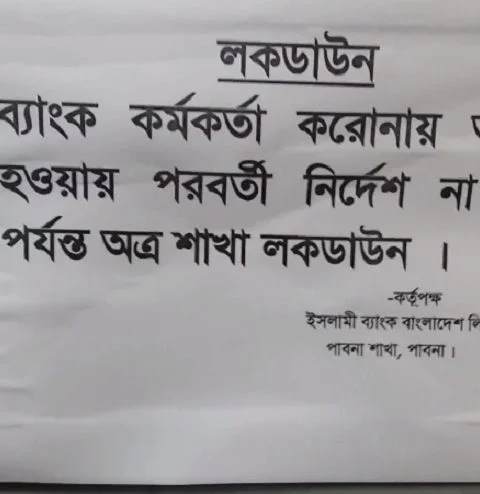 লকডাউন
ব্যাংক কর্মকর্তা করোনায়
হওয়ায় পরবর্তী নির্দেশ না
পর্যন্ত অত্র শাখা লকডাউন ।
-কর্তৃপক্ষ
ইসলামী ব্যাংক বাংলাদেশ
পাবনা শাখা, পাবনা ।